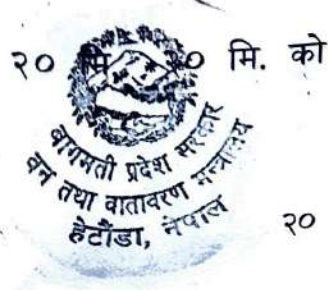 २० मि २० मि. को
बागमती प्रदेश सरकार
वन तथा वातावरण मन्त्रालय
हेटौंडा, नेपाल
२०